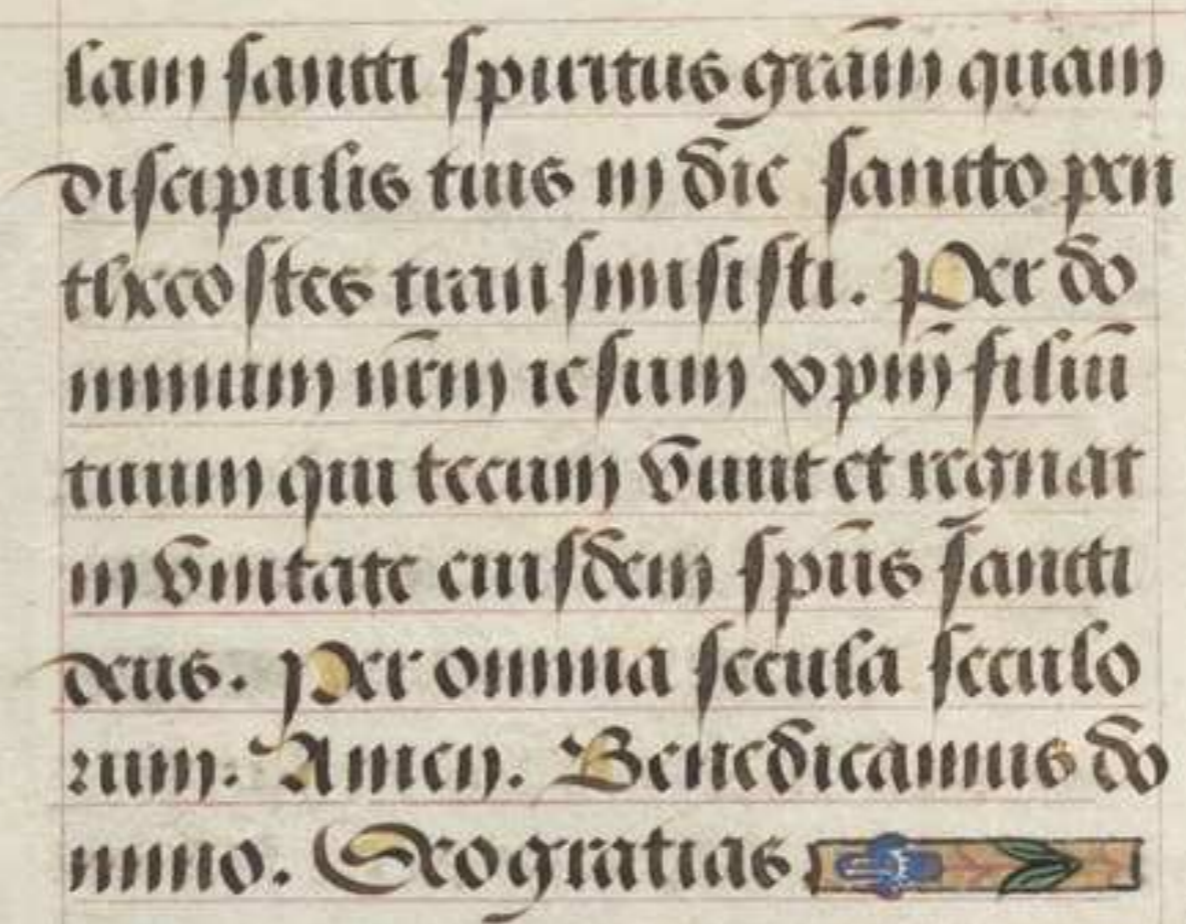 lam sancti spiritus grãm quam
discipulis tuis in die sancto pen
thecostes transmisisti. Per do
minum nr̃m iesum xpm̃ filiũ
tuum qui tecum viuit et regnat
in vnitate eiusdem spũs sancti
deus. Per omnia secula seculo
rum. Amen. Benedicamus do
mino. Deo gratias